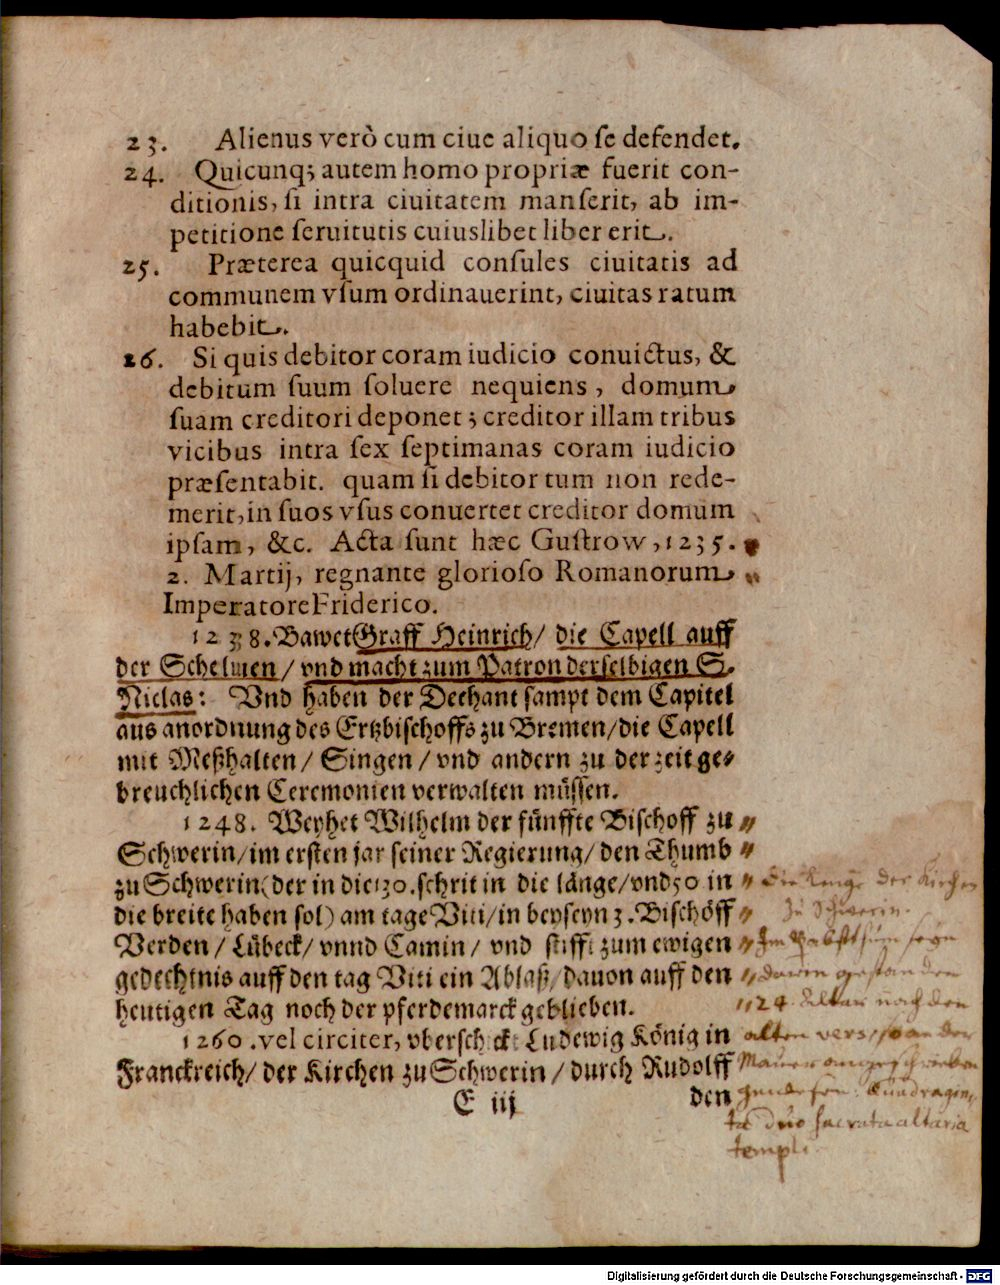 23. Alienus verò cum ciue aliquo se defendet.
24. Quicunq; autem homo propriæ fuerit con-
ditionis, si intra ciuitatem manserit, ab im-
petitione seruitutis cuiuslibet liber erit.
25. Præterea quicquid consules ciuitatis ad
communem vsum ordinauerint, ciuitas ratum
habebit.
26. Si quis debitor coram iudicio conuictus, &
debitum suum soluere nequiens, domum
suam creditori deponet; creditor illam tribus
vicibus intra sex septimanas coram iudicio
præsentabit. quam si debitor tum non rede-
merit, in suos vsus conuertet creditor domum
ipsam, &c. Acta sunt hæc Gustrow, 1235.
2. Martij, regnante glorioso Romanorum
Imperatore Friderico.
1238. Bawet Graff Heinrich/ die Capell auff
der Schelmen/ vnd macht zum Patron derselbigen S.
Niclas: Vnd haben der Dechant sampt dem Capitel
aus anordnung des Ertzbischoffs zu Bremen/ die Capell
mit Meßhalten/ Singen/ vnd andern zu der zeit ge-
breuchlichen Ceremonien verwalten müssen.
1248. Weyhet Wilhelm der fünffte Bischoff zu
Schwerin/ im ersten jar seiner Regierung/ den Thumb
zu Schwerin (der in die 130. schrit in die länge/ vnd 50 in
die breite haben sol) am tage Viti/ in beyseyn 3. Bischöff
Verden/ Lübeck/ vnnd Camin/ vnd stifft zum ewigen
gedechtnis auff den tag Viti ein Ablaß/ dauon auff den
heutigen Tag noch der pferdemarck geblieben.
1260. vel circiter, vberschickt Ludewig König in
Franckreich/ der Kirchen zu Schwerin/ durch Rudolff
E iij den
Die Lenge der Kirchen
zu Schwerin.
Im Pabsthum seyn
darin gestanden
Altar nach den
alten an der
Mauer angeschrieben
Quadragin-
ta duo sacrata altaria
templi.
Digitalisierung gefördert durch die Deutsche Forschungsgemeinschaft - DFG